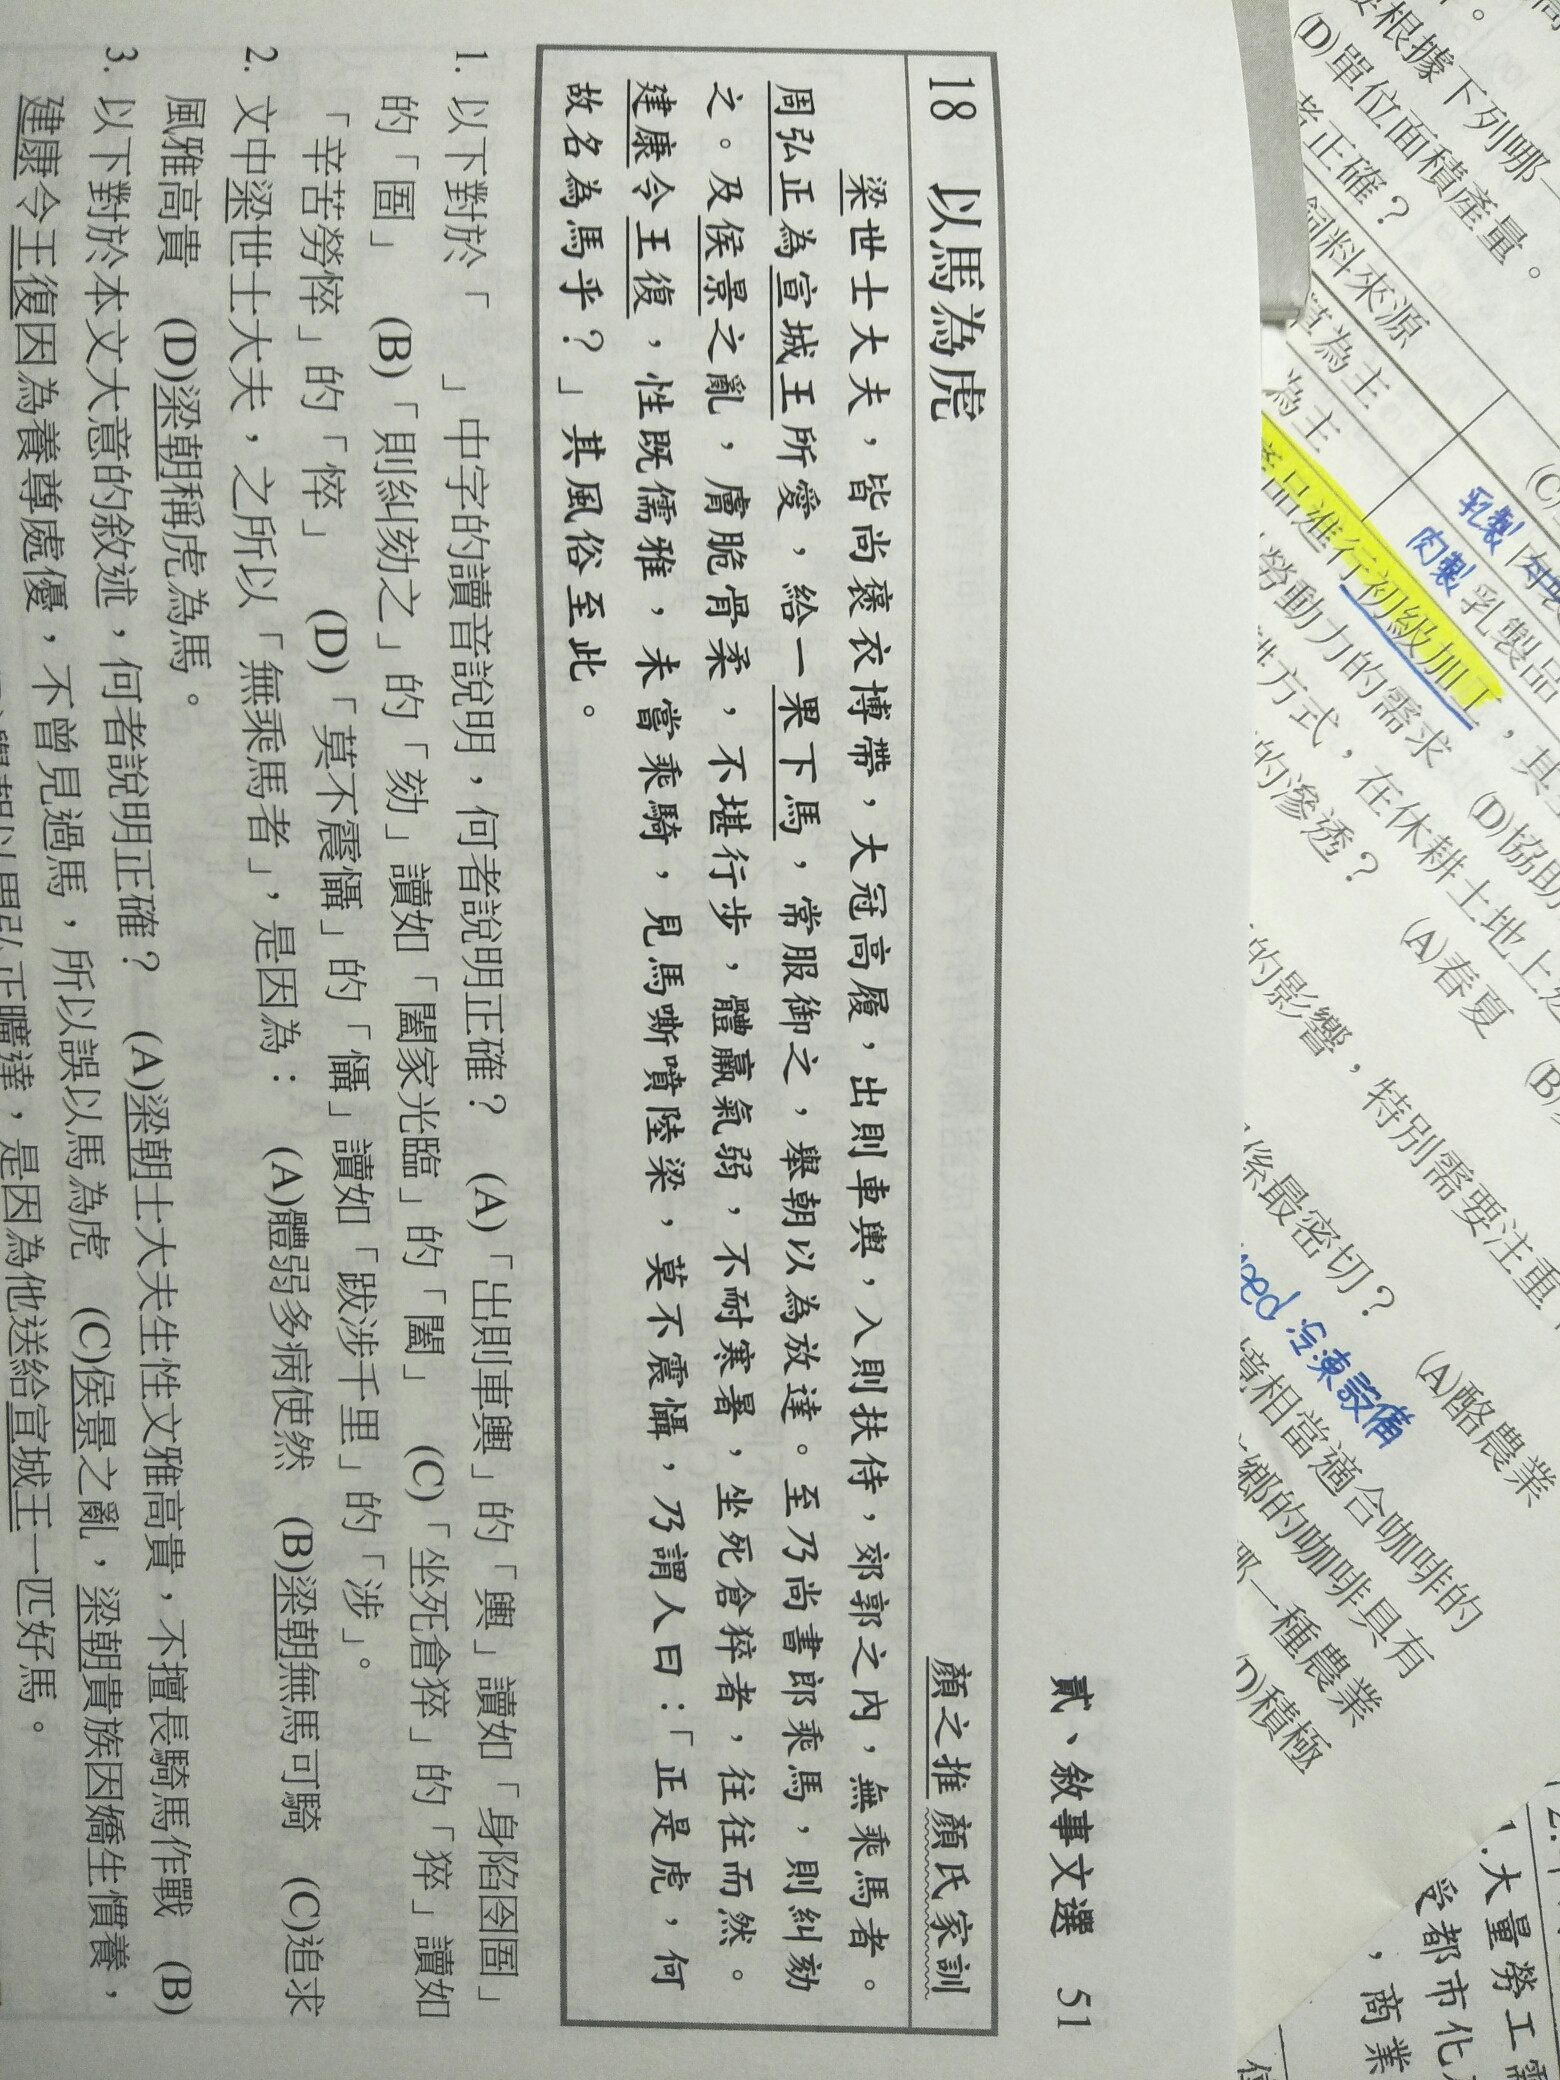 貳、敘事文選 51
18 以馬為虎 顏之推 顏氏家訓
梁世士大夫，皆尚褒衣博帶，大冠高履，出則車輿，入則扶侍，郊郭之內，無乘馬者。
周弘正為宣城王所愛，給一果下馬，常服御之，舉朝以為放達。至乃尚書郎乘馬，則糾劾
之。及侯景之亂，膚脆骨柔，不堪行步，體羸氣弱，不耐寒暑，坐死倉猝者，往往而然。
建康令王復，性既儒雅，未嘗乘騎，見馬嘶噴陸梁，莫不震懾，乃謂人曰：「正是虎，何
故名為馬乎？」其風俗至此。
1. 以下對於「 」中字的讀音說明，何者說明正確？ (A)「出則車輿」的「輿」讀如「身陷囹圄」
的「圄」 (B)「則糾劾之」的「劾」讀如「闔家光臨」的「闔」 (C)「坐死倉猝」的「猝」讀如
「辛苦勞悴」的「悴」 (D)「莫不震懾」的「懾」讀如「跋涉千里」的「涉」。
2. 文中梁世士大夫，之所以「無乘馬者」，是因為： (A)體弱多病使然 (B)梁朝無馬可騎 (C)追求
風雅高貴 (D)梁朝稱虎為馬。
3. 以下對於本文大意的敘述，何者說明正確？ (A)梁朝士大夫生性文雅高貴，不擅長騎馬作戰 (B)
建康令王復因為養尊處優，不曾見過馬，所以誤以馬為虎 (C)侯景之亂，梁朝貴族因嬌生慣養，
是因為他送給宣城王一匹好馬。
根據下列哪一
(D)單位面積產量。
正確？
飼料來源
為主
為主
乳製
肉製 乳製品
品進行初級加工，其
勞動力的需求 (D)協助
方式，在休耕土地上
的滲透？ (A)春夏 (B)
的影響，特別需要注重
最密切？ (A)酪農業
冷凍設備
相當適合咖啡的
鄉的咖啡具有
一種農業
(D)積極
1.大量勞工需
受都市化
，商業